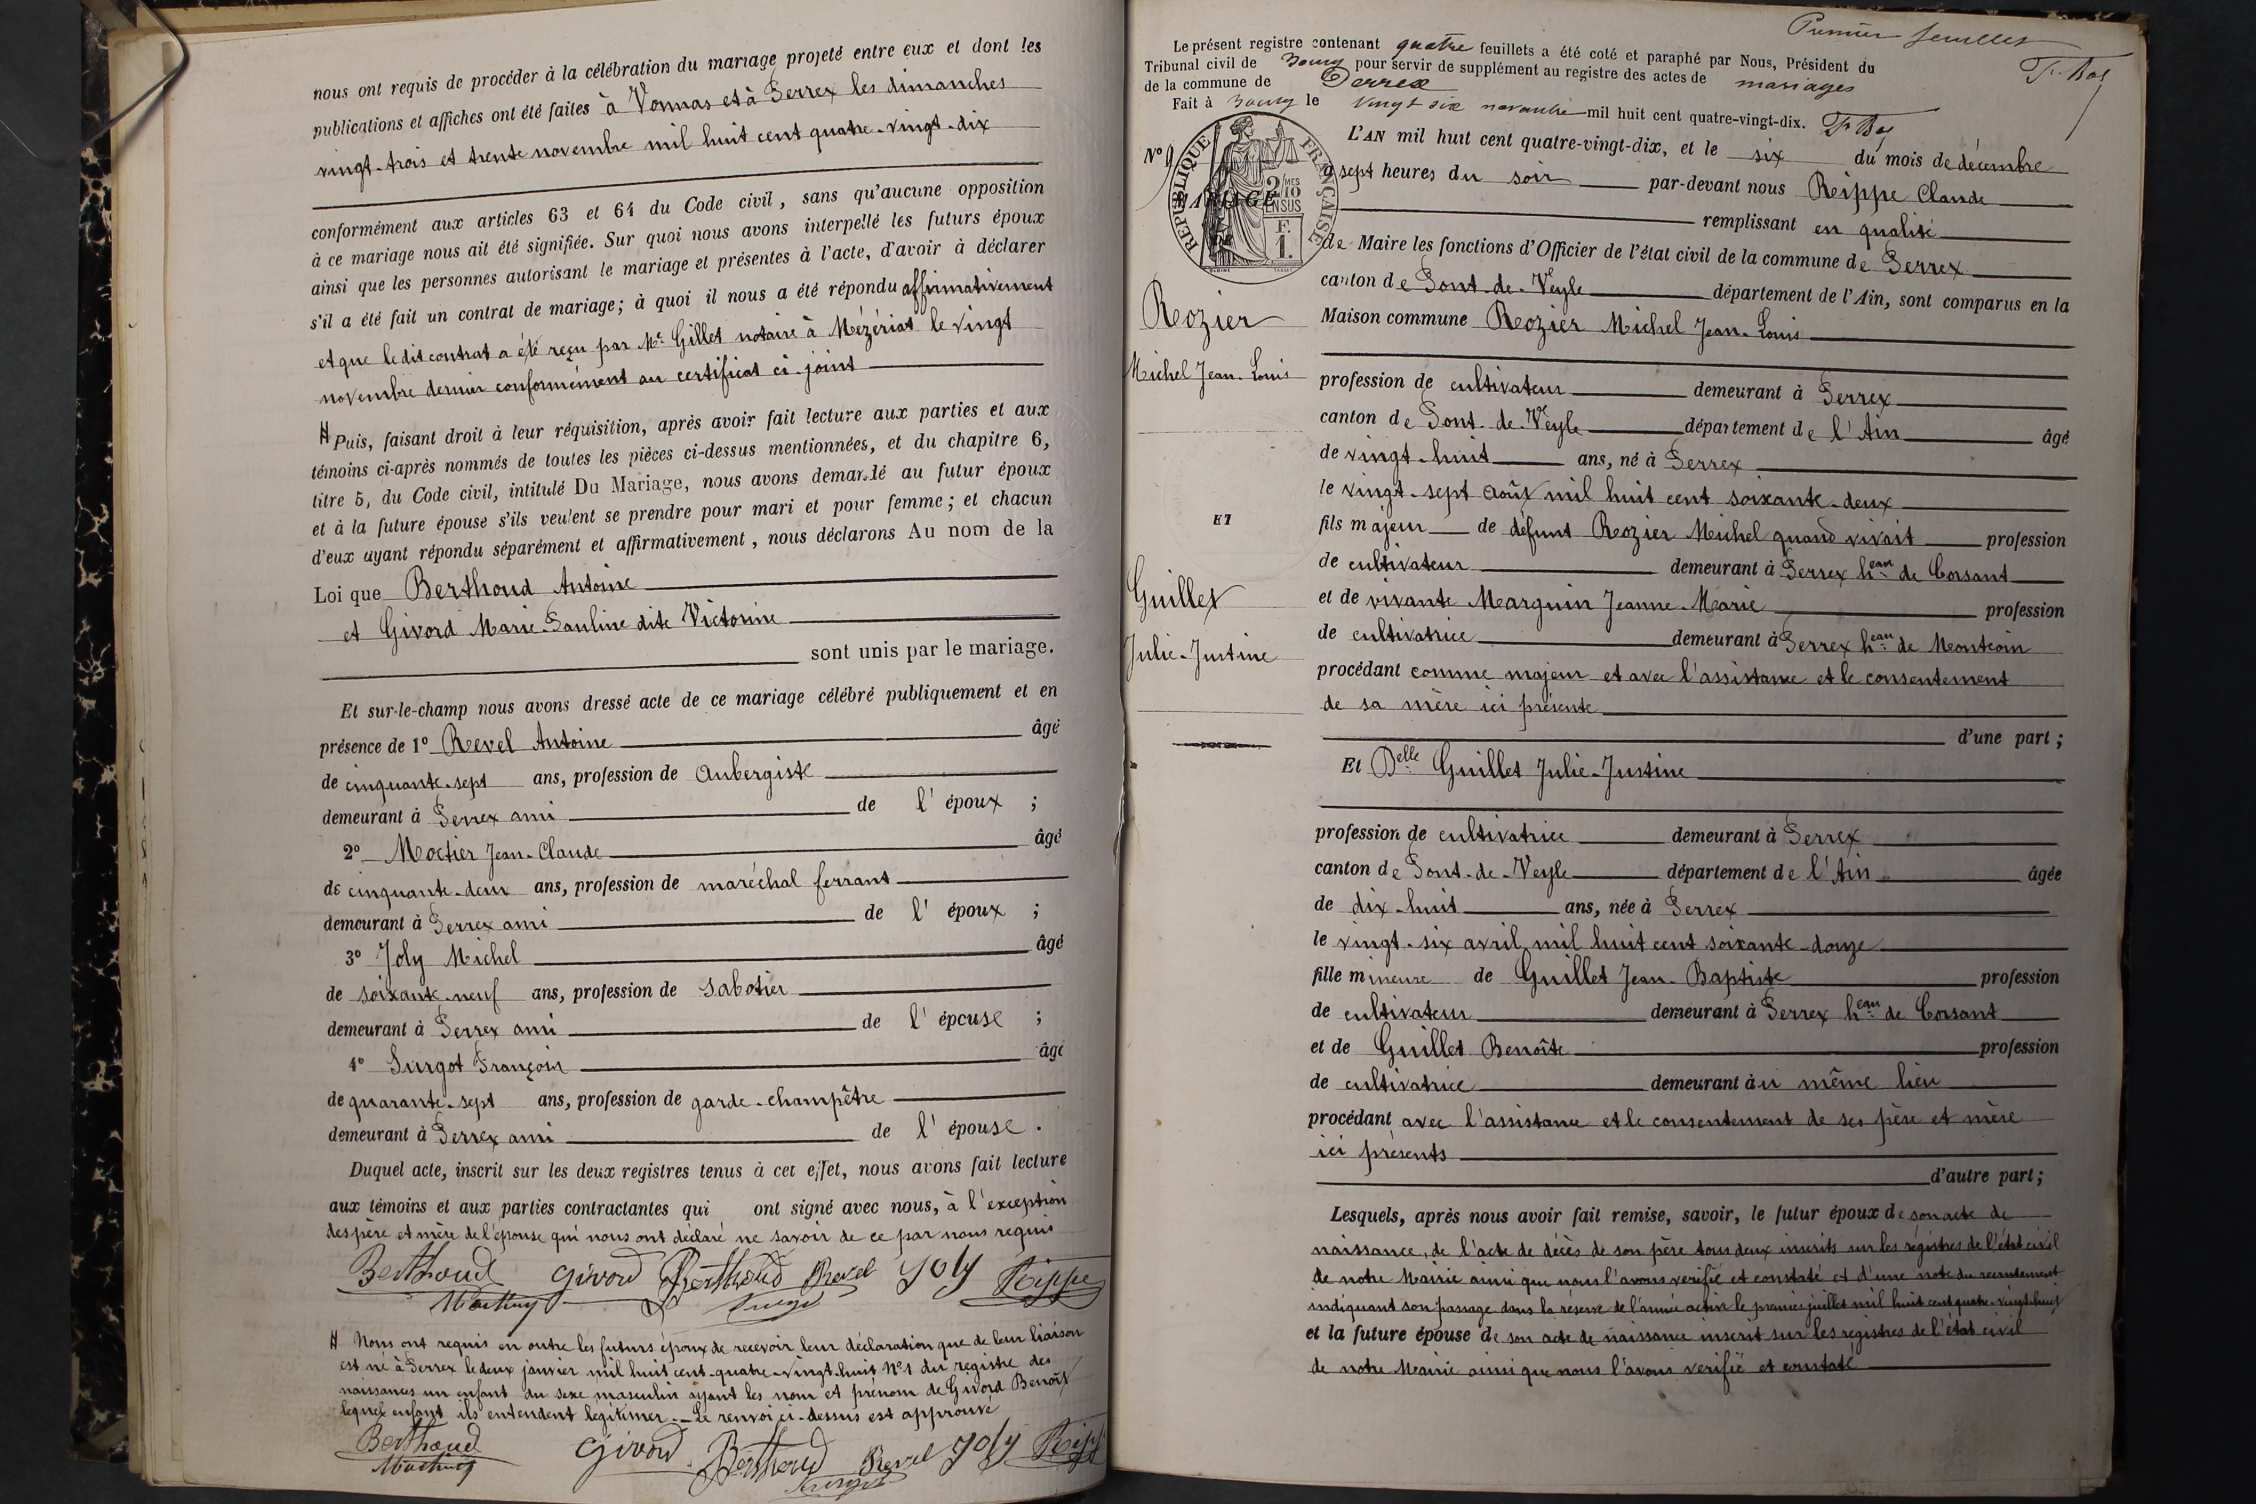 nous ont requis de procéder à la célébration du mariage projeté entre eux et dont les
publications et affiches ont été faites à Vonnas et à Perrex les dimanches
vingt-trois et trente novembre mil huit cent quatre-vingt-dix
conformément aux articles 63 et 64 du Code civil, sans qu'aucune opposition
à ce mariage nous ait été signifiée. Sur quoi nous avons interpellé les futurs époux
ainsi que les personnes autorisant le mariage et présentes à l'acte, d'avoir à déclarer
s'il a été fait un contrat de mariage; à quoi il nous a été répondu affirmativement
et que le dit contrat a été reçu par Me Gillet notaire à Mézériat le vingt
novembre dernier conformément au certificat ci-joint
Puis, faisant droit à leur réquisition, après avoir fait lecture aux parties et aux
témoins ci-après nommés de toutes les pièces ci-dessus mentionnées, et du chapitre 6,
titre 5, du Code civil, intitulé Du Mariage, nous avons demandé au futur époux
et à la future épouse s'ils veulent se prendre pour mari et pour femme; et chacun
d'eux ayant répondu séparément et affirmativement, nous déclarons Au nom de la
Loi que Berthoud Antoine
et Givord Marie-Pauline dite Victorine
sont unis par le mariage.
Et sur-le-champ nous avons dressé acte de ce mariage célébré publiquement et en
présence de 1° Revel Antoine âgé
de cinquante-sept ans, profession de Aubergiste
demeurant à Perrex ami de l'époux ;
2° Moctier Jean-Claude âgé
de cinquante-deux ans, profession de maréchal ferrant
demeurant à Perrex ami de l'époux ;
3° Joly Michel âgé
de soixante-neuf ans, profession de Sabotier
demeurant à Perrex ami de l'épouse ;
4° Surgot François âgé
de quarante-sept ans, profession de garde-champêtre
demeurant à Perrex ami de l'épouse.
Duquel acte, inscrit sur les deux registres tenus à cet effet, nous avons fait lecture
aux témoins et aux parties contractantes qui ont signé avec nous, à l'exception
des père et mère de l'épouse qui nous ont déclaré ne savoir de ce par nous requis
Berthoud Givord Berthoud Revel Joly Reippe
Nous ont requis en outre les futurs époux de recevoir leur déclaration que de leur liaison
est né à Perrex le deux janvier mil huit cent-quatre-vingt-huit N° 1 du registre des
naissances un enfant du sexe masculin ayant les nom et prénom de Givord Benoît
lequel enfant ils entendent légitimer.- Le renvoi ci-dessus est approuvé
Berthoud Givord Berthoud Revel Joly Reippe
Premier feuillet
Le présent registre contenant quatre feuillets a été coté et paraphé par Nous, Président du
Tribunal civil de Bourg pour servir de supplément au registre des actes de mariages
de la commune de Perrex
Fait à Bourg le vingt six novembre mil huit cent quatre-vingt-dix.
N° 9
MARIAGE
RÉPUBLIQUE FRANÇAISE
2/10MES
EN SUS
F.
1.
Rozier
Michel Jean-Louis
ET
Guillet
Julie-Justine
L'AN mil huit cent quatre-vingt-dix, et le six du mois de décembre
à sept heures du soir par-devant nous Reippe Claude
remplissant en qualité
de Maire les fonctions d'Officier de l'état civil de la commune de Perrex
canton de Pont-de-Veyle département de l'Ain, sont comparus en la
Maison commune Rozier Michel Jean-Louis
profession de cultivateur demeurant à Perrex
canton de Pont-de-Veyle département de l'Ain âgé
de vingt-huit ans, né à Perrex
le vingt-sept août mil huit cent soixante-deux
fils majeur de défunt Rozier Michel quand vivait profession
de cultivateur demeurant à Perrex heau de Corsant
et de vivante Marguin Jeanne-Marie profession
de cultivatrice demeurant à Perrex heau de Montcoin
procédant comme majeur et avec l'assistance et le consentement
de sa mère ici présente
d'une part;
Et Delle Guillet Julie-Justine
profession de cultivatrice demeurant à Perrex
canton de Pont-de-Veyle département de l'Ain âgée
de dix-huit ans, née à Perrex
le vingt-six avril mil huit cent soixante-douze
fille mineure de Guillet Jean-Baptiste profession
de cultivateur demeurant à Perrex heau de Corsant
et de Guillet Benoîte profession
de cultivatrice demeurant au même lieu
procédant avec l'assistance et le consentement de ses père et mère
ici présents
d'autre part;
Lesquels, après nous avoir fait remise, savoir, le futur époux de son acte de
naissance, de l'acte de décès de son père tous deux inscrits sur les registres de l'état civil
de notre Mairie ainsi que nous l'avons verifié et constaté et d'une note du recrutement
indiquant son passage dans la réserve de l'armée active le premier juillet mil huit cent quatre-vingt-huit
et la future épouse de son acte de naissance inscrit sur les registres de l'état civil
de notre Mairie ainsi que nous l'avons verifié et constaté